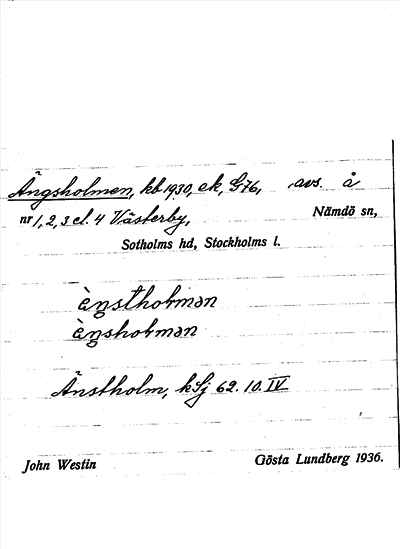 Ängsholmen, kb 1930, ek, G76, avs. å
nr 1, 2, 3 el. 4 Västerby, Nämdö sn,
Sotholms hd, Stockholms l.
ὲŋstholmən
ὲŋsholmən
Änstholm, kSj 62. 10. IV
John Westin Gösta Lundberg 1936.